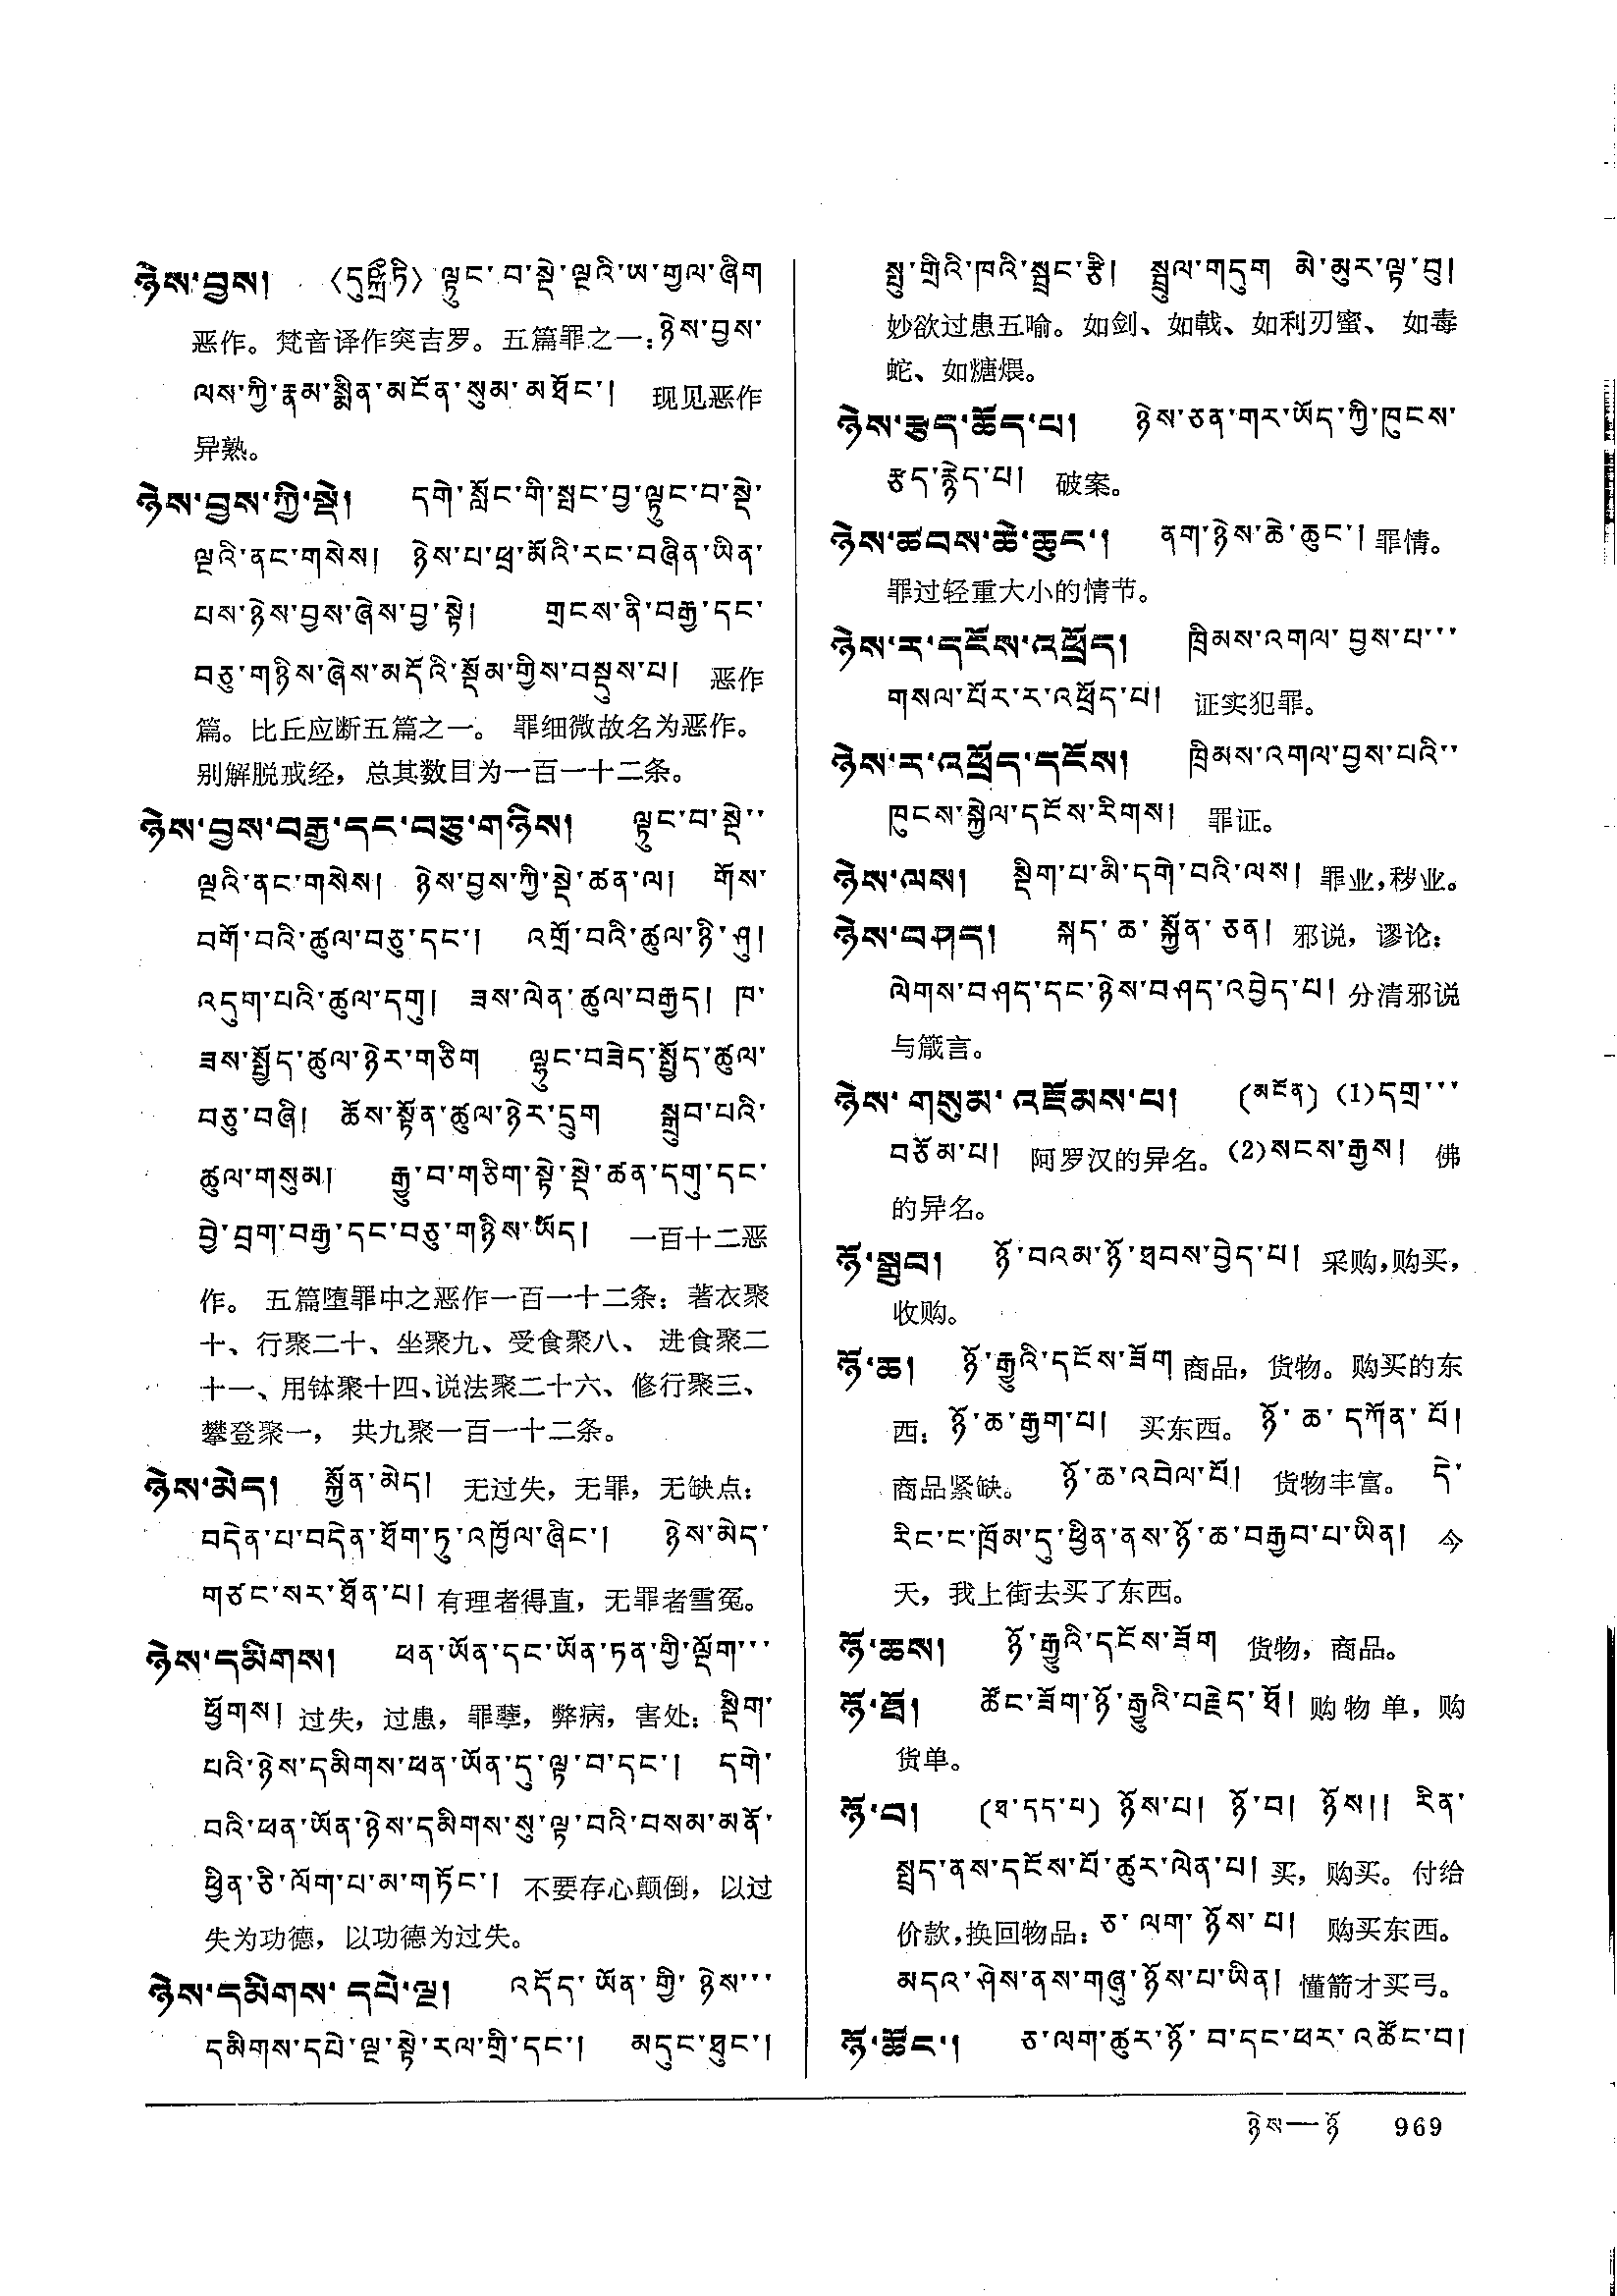 ཉེས་བྱས། 〈དུཥྐྲྀཏི〉 ལྟུང་བ་སྡེ་ལྔའི་ཨ་གྱལ་ཞིག
恶作。梵音译作突吉罗。五篇罪之一：ཉེས་བྱས་
ལས་ཀྱི་རྣམ་སྨིན་མངོན་སུམ་མཐོང་། 现见恶作
异熟。
ཉེས་བྱས་ཀྱི་སྡེ། དགེ་སློང་གི་སྤང་བྱ་ལྟུང་བ་སྡེ་
ལྔའི་ནང་གསེས། ཉེས་པ་ཕྲ་མོའི་རང་བཞིན་ཡིན་
པས་ཉེས་བྱས་ཞེས་བྱ་སྟེ། གྲངས་ནི་བརྒྱ་དང་
བཅུ་གཉིས་ཞེས་མདོའི་སྡོམ་གྱིས་བསྡུས་པ། 恶作
篇。比丘应断五篇之一。 罪细微故名为恶作。
别解脱戒经，总其数目为一百一十二条。
ཉེས་བྱས་བརྒྱ་དང་བཅུ་གཉིས། ལྟུང་བ་སྡེ་་
ལྔའི་ནང་གསེས། ཉེས་བྱས་ཀྱི་སྡེ་ཚན་ལ། གོས་
བགོ་བའི་ཚུལ་བཅུ་དང་། འགྲོ་བའི་ཚུལ་ཉི་ཤུ།
འདུག་པའི་ཚུལ་དགུ། ཟས་ལེན་ཚུལ་བརྒྱད། ཁ་
ཟས་སྤྱོད་ཚུལ་ཉེར་གཅིག ལྷུང་བཟེད་སྤྱོད་ཚུལ་
བཅུ་བཞི། ཆོས་སྟོན་ཚུལ་ཉེར་དྲུག སྒྲུབ་པའི་
ཚུལ་གསུམ། རྒྱུ་བ་གཅིག་སྟེ་སྡེ་ཚན་དགུ་དང་
བྱེ་བྲག་བརྒྱ་དང་བཅུ་གཉིས་ཡོད། 一百十二恶
作。 五篇堕罪中之恶作一百一十二条：著衣聚
十、行聚二十、坐聚九、受食聚八、 进食聚二
十一、用钵聚十四、说法聚二十六、修行聚三、
攀登聚一， 共九聚一百一十二条。
ཉེས་མེད། སྐྱོན་མེད། 无过失，无罪，无缺点：
བདེན་པ་བདེན་ཐོག་ཏུ་འཁྱོལ་ཞིང་། ཉེས་མེད་
གཙང་སར་ཐོན་པ། 有理者得直，无罪者雪冤。
ཉེས་དམིགས། ཕན་ཡོན་དང་ཡོན་ཏན་གྱི་ལྡོག་་་
ཕྱོགས། 过失，过患，罪孽，弊病，害处：སྡིག་
པའི་ཉེས་དམིགས་ཕན་ཡོན་དུ་ལྟ་བ་དང་། དགེ་
བའི་ཕན་ཡོན་ཉེས་དམིགས་སུ་ལྟ་བའི་བསམ་མནོ་
ཕྱིན་ཅི་ལོག་པ་མ་གཏོང་། 不要存心颠倒，以过
失为功德，以功德为过失。
ཉེས་དམིགས་དཔེ་ལྔ། འདོད་ཡོན་གྱི་ཉེས་་་
དམིགས་དཔེ་ལྔ་སྟེ་རལ་གྲི་དང་། མདུང་ཐུང་།
སྤུ་གྲིའི་ཁའི་སྦྲང་རྩི། སྦྲུལ་གདུག མེ་མུར་ལྟ་བུ།
妙欲过患五喻。如剑、如戟、如利刃蜜、 如毒
蛇、如煻煨。
ཉེས་རྩད་ཆོད་པ། ཉེས་ཅན་གར་ཡོད་ཀྱི་ཁུངས་
རྩད་རྙེད་པ། 破案。
ཉེས་ཚབས་ཆེ་ཆུང་། ནག་ཉེས་ཆེ་ཆུང་། 罪情。
罪过轻重大小的情节。
ཉེས་ར་དངོས་འཕྲོད། ཁྲིམས་འགལ་བྱས་པ་་་
གསལ་པོར་ར་འཕྲོད་པ། 证实犯罪。
ཉེས་ར་འཕྲོད་དངོས། ཁྲིམས་འགལ་བྱས་པའི་་
ཁུངས་སྐྱེལ་དངོས་རིགས། 罪证。
ཉེས་ལས། སྡིག་པ་མི་དགེ་བའི་ལས། 罪业，秽业。
ཉེས་བཤད། སྐད་ཆ་སྐྱོན་ཅན། 邪说，谬论：
ལེགས་བཤད་དང་ཉེས་བཤད་འབྱེད་པ། 分清邪说
与箴言。
ཉེས་གསུམ་འཇོམས་པ། (མངོན) (1)དགྲ་་་
བཅོམ་པ། 阿罗汉的异名。(2)སངས་རྒྱས། 佛
的异名。
ཉོ་སྒྲུབ། ཉོ་བའམ་ཉོ་ཐབས་བྱེད་པ། 采购，购买，
收购。
ཉོ་ཆ། ཉོ་རྒྱུའི་དངོས་ཟོག 商品，货物。购买的东
西：ཉོ་ཆ་རྒྱག་པ། 买东西。ཉོ་ཆ་དཀོན་པོ།
商品紧缺。 ཉོ་ཆ་འབེལ་པོ། 货物丰富。 དེ་
རིང་ང་ཁྲོམ་དུ་ཕྱིན་ནས་ཉོ་ཆ་བརྒྱབ་པ་ཡིན། 今
天，我上街去买了东西。
ཉོ་ཆས། ཉོ་རྒྱུའི་དངོས་ཟོག 货物，商品。
ཉོ་ཐོ། ཚོང་ཟོག་ཉོ་རྒྱུའི་བརྗེད་ཐོ། 购物单，购
货单。
ཉོ་བ། (ཐ་དད་པ) ཉོས་པ། ཉོ་བ། ཉོས།། རིན་
སྤྲད་ནས་དངོས་པོ་ཚུར་ལེན་པ། 买，购买。付给
价款，换回物品：ཅ་ལག་ཉོས་པ། 购买东西。
མདའ་ཤེས་ནས་གཞུ་ཉོས་པ་ཡིན། 懂箭才买弓。
ཉོ་ཚོང་། ཅ་ལག་ཚུར་ཉོ་བ་དང་ཕར་འཚོང་བ།
ཉེས—ཉོ 969